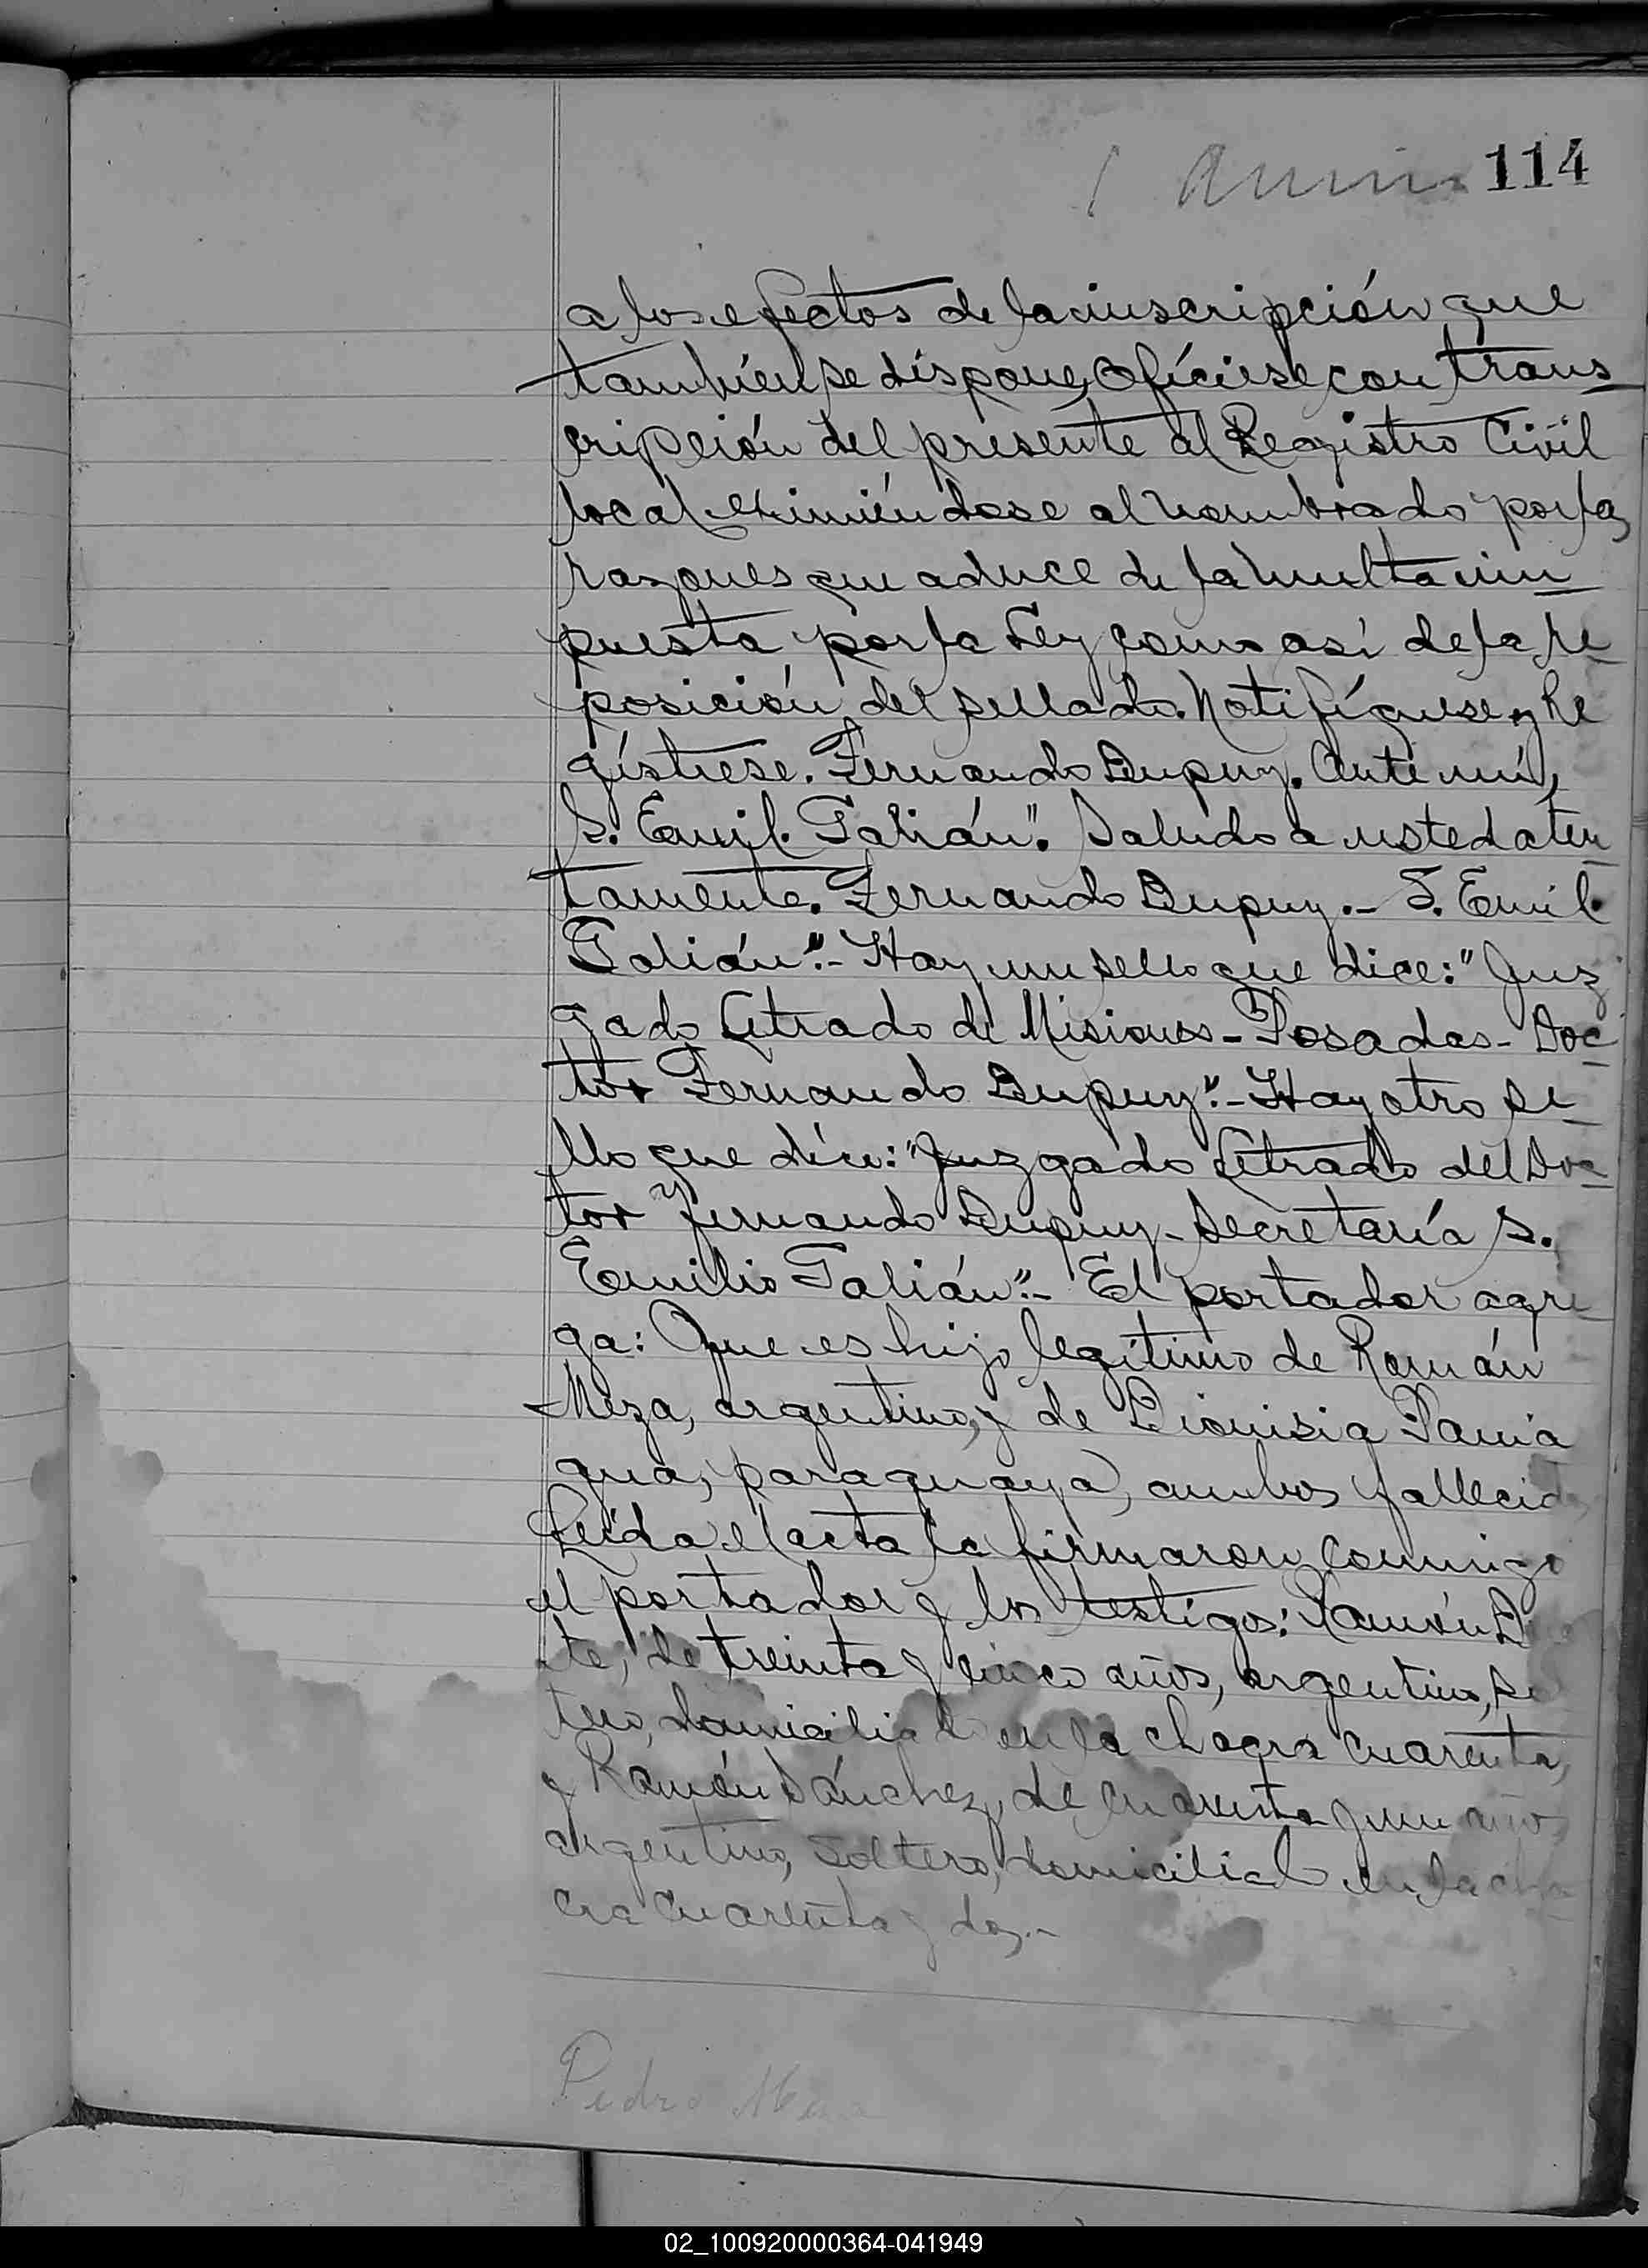 114
a los efectos de la inscripción que
también se dispone, Ofíciese con trans
cripción del presente al Registro Civil
local eximiéndose al nombrado por las
razones que aduce de la multa im
puesta por la Ley como así de la re
posición del sellado. Notifíquese y Re
gístrese. Fernando Dupuy. Ante mí,
S. Emil. Galián". Saludo a usted aten
tamente. Fernando Dupuy.- S. Emil.
Galián".- Hay un sello que dice: "Juz
gado Letrado de Misiones - Posadas - Doc
tor Fernando Dupuy".- Hay otro se
llo que dice: "Juzgado Letrado del Doc
tor Fernando Dupuy - Secretaría S.
Emilio Galián".- El portador agre
ga: Que es hijo legítimo de Román
Meza, argentino, y de Dionisia Pania
gua, paraguaya, ambos fallecidos
Leída el acta la firmaron conmigo
el portador y los testigos: Ramón
te, de treinta y cinco años, argentino, sol
tero, domiciliado en la chacra cuarenta,
y Ramón Sánchez, de cuarenta y un años
argentino, soltero, domiciliado en la cha
cra cuarenta y dos.-
Pedro Meza
02_100920000364-041949